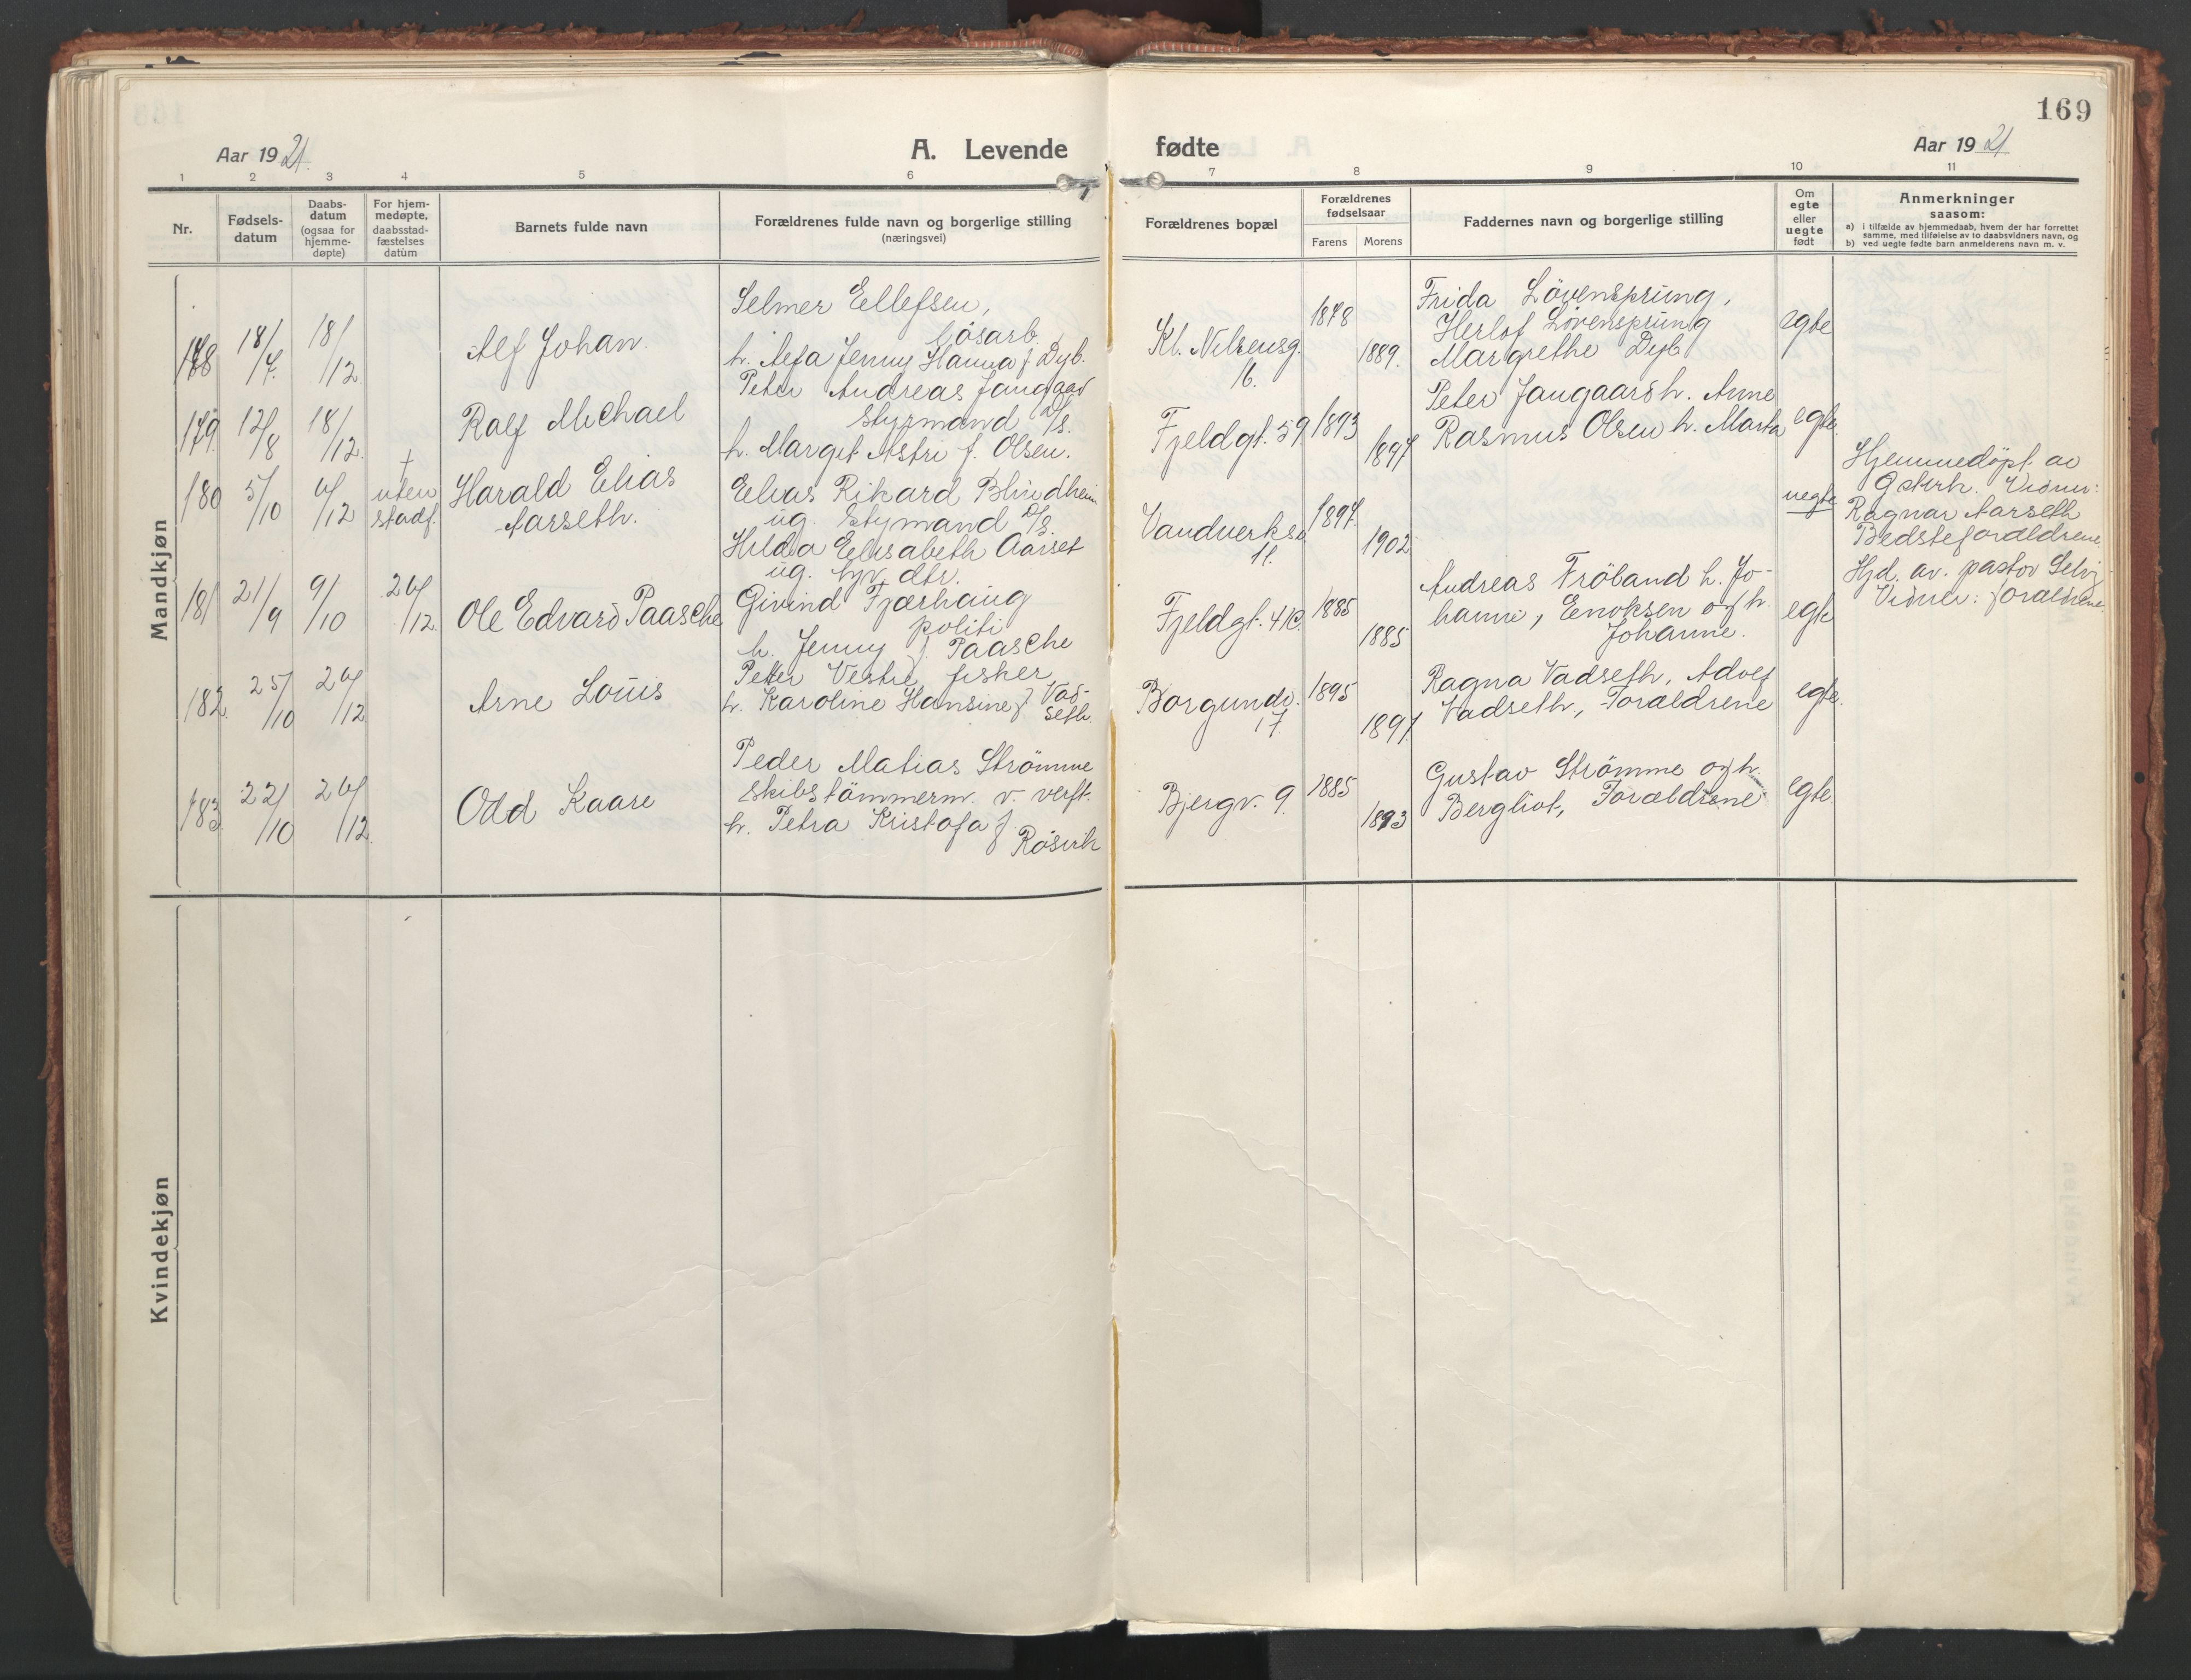 169
Aar 1921.
A. Levende fødte
Aar 1921
1 2 3 4 5 6 7 8 9 10 11
Nr.
Fødsels-
datum
Daabs-
datum
(ogsaa for
hjemme-
døpte)
For hjem-
medøpte,
daabsstad-
fæstelses
datum
Barnets fulde navn
Forældrenes fulde navn og borgerlige stilling
(næringsvei)
Forældrenes bopæl
Forældrenes
fødselsaar
Farens
Morens
Faddernes navn og borgerlige stilling
Om
egte
eller
uegte
født
Anmerkninger
saasom:
a) i tilfælde av hjemmedaab, hvem der har forrettet
samme, med tilføielse av to daabsvidners navn, og
b) ved uegte fødte barn anmelderens navn m. v.
Mandkjøn
178
18/7.
18/12.
Alf Johan.
Selmer Ellefsen,
Løsarb.
h. Jenny Hanna f Dyb.
Kl. Nilsensg.
16.
1878
1889.
Frida Lövensprung,
Herlof Lövensprung
Margrethe Dyb
egte
179
12/8
18/12.
Ralf Michael
Peter Andreas Jangaard
Styrmand D/S.
h. Margit Astri f. Olsen.
Fjeldgt. 59
1893
1897
Peter Jangaard h. Anne
Rasmus Olsen h. Marta
egte.
180
5/10
6/12
†
uten
stadf.
Harald Elias
Aarseth.
Elias Rikard Blindheim
ug. Stymand D/S.
Hilda Elisabeth Aarset
ug. dtr.
Vandverksv.
11.
1897.
1902
uegte
Hjemmedøpt av
Vidner:
Ragnar Aarseth
Bedsteforældrene.
181
21/9
9/10
26/12.
Ole Edvard Paasche
Eivind Fjærhaug
politi
h. Jenny f. Paasche
Fjeldgt. 41C.
1885
1885
Andreas Fröland h. Jo-
hanne, Enoksen og h.
Johanne.
egte
Hjd. av. pastor Selvig
Vidner: forældrene.
182.
25/10
26/12
Arne Louis
Petter Vestre, fisker,
h. Karoline Hansine f Vad-
seth.
Borgundv.
17.
1895
1897.
Ragna Vadseth, Adolf
Vadseth, Forældrene
egte.
183
22/10
26/12.
Odd Kaare
Peder Matias Strömme
Skibstömmerm. v. verft.
h. Petra Kristofa f.
Røsvik
Bjergv. 9.
1885
1893
Gustav Strömme og h.
Bergliot, Forældrene
egte
Kvindekjøn